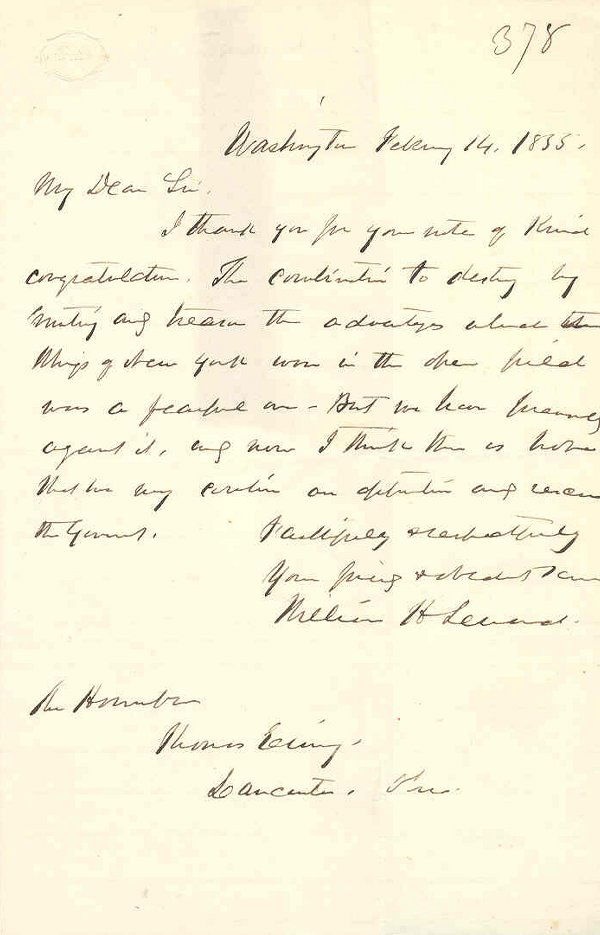 378
Washington February 14, 1855.
My Dear Sir.
I thank you for your note of kind
congratulation. The combination to destroy by
mutiny and treason the advantages which the
Whigs of New York won in the open field
was a fearful one - But we have prevailed
against it, and now I think there is hope
that we may combine our and rescue
the Government.
Faithfully & respectfully
Your friend & obedient Servant
William H Seward.
The Honorable
Thomas Ewing.
Lancaster.